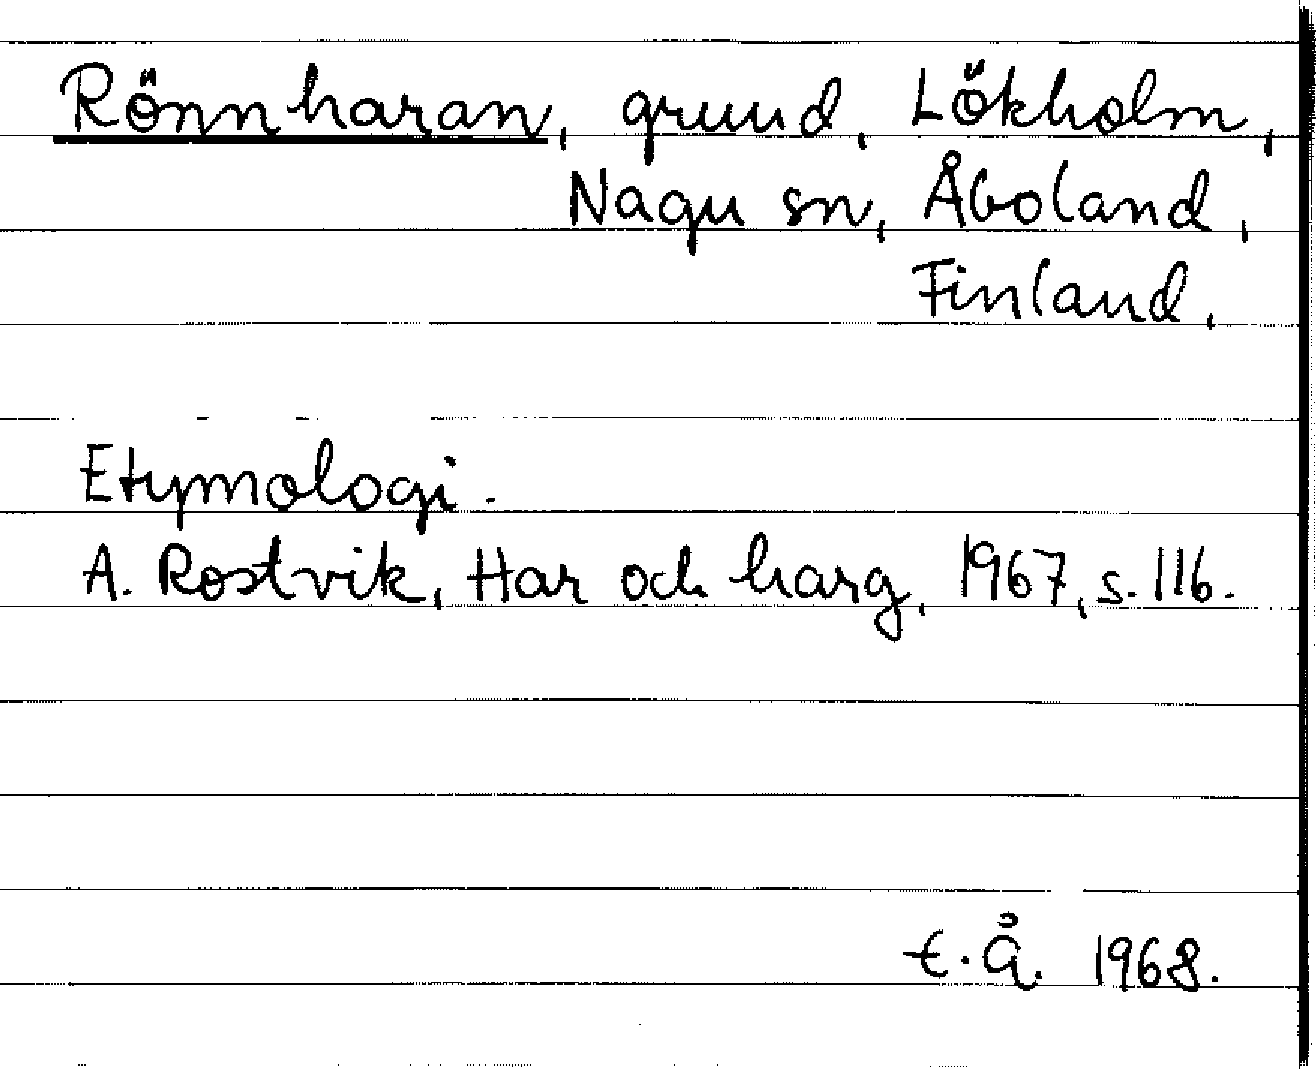 Rönnharan, grund, Lökholm,
Nagu sn, Åboland,
Finland.
Etymologi.
A. Rostvik, Har och harg, 1967, s. 116.
E. Å. 1968.